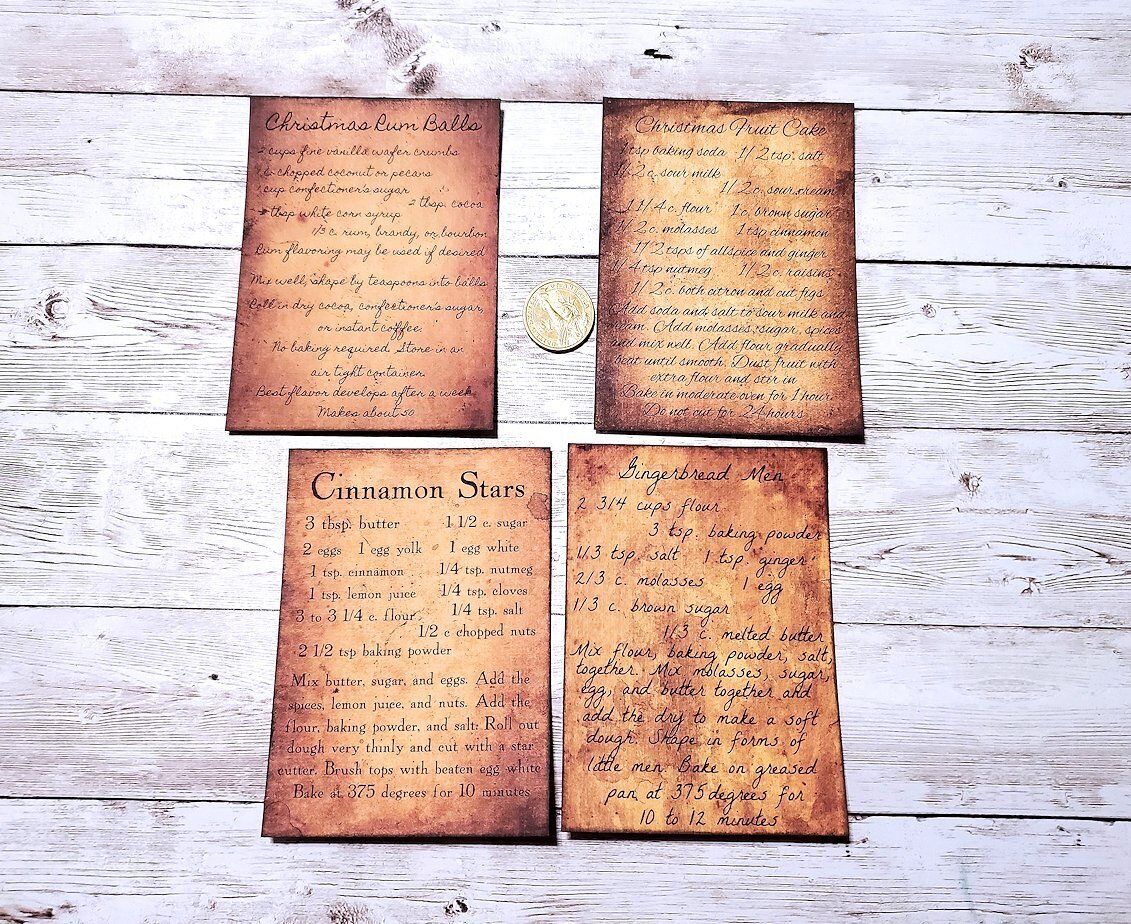 Christmas Rum Balls
2 cups fine vanilla wafer crumbs
chopped coconut or pecans
cup confectioner's sugar
2 tbsp. cocoa
tbsp white corn syrup
1/3 c. rum, brandy, or bourbon
Rum flavoring may be used if desired
Mix well, shape by teaspoons into balls
Roll in dry cocoa, confectioner's sugar,
or instant coffee.
No baking required. Store in an
air tight container.
Best flavor develops after a week
Makes about 50
Christmas Fruit Cake
1 tsp baking soda 1/2 tsp. salt
1/2 c. sour milk
1/2 c. sour cream
1 1/4 c. flour 1 c. brown sugar
1/2 c. molasses 1 tsp cinnamon
1 1/2 tsps of allspice and ginger
1/4 tsp nutmeg 1/2 c. raisins
1/2 c. both citron and cut figs
Add soda and salt to sour milk and
cream. Add molasses, sugar, spices
and mix well. Add flour gradually
beat until smooth. Dust fruit with
extra flour and stir in
Bake in moderate oven for 1 hour
Do not cut for 24 hours
Cinnamon Stars
3 tbsp. butter 1 1/2 c. sugar
2 eggs 1 egg yolk 1 egg white
1 tsp. cinnamon 1/4 tsp. nutmeg
1 tsp. lemon juice 1/4 tsp. cloves
3 to 3 1/4 c. flour 1/4 tsp. salt
1/2 c chopped nuts
2 1/2 tsp baking powder
Mix butter, sugar, and eggs. Add the
spices, lemon juice, and nuts. Add the
flour, baking powder, and salt. Roll out
dough very thinly and cut with a star
cutter. Brush tops with beaten egg white
Bake at 375 degrees for 10 minutes
Gingerbread Men
2 3/4 cups flour
3 tsp. baking powder
1/3 tsp. salt 1 tsp. ginger
2/3 c. molasses 1 egg
1/3 c. brown sugar
1/3 c. melted butter
Mix flour, baking powder, salt,
together. Mix molasses, sugar,
egg, and butter together and
add the dry to make a soft
dough. Shape in forms of
little men. Bake on greased
pan at 375 degrees for
10 to 12 minutes